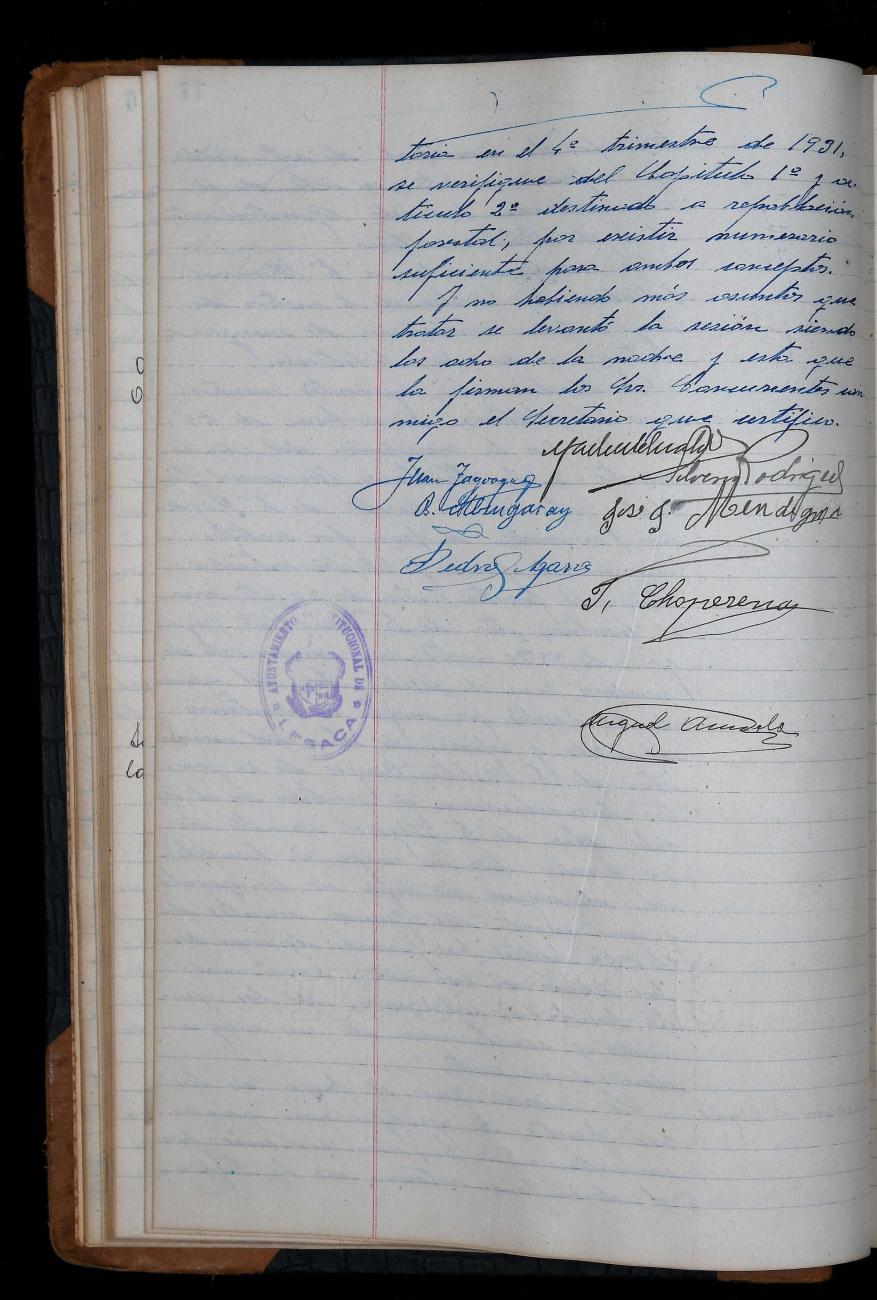 taria en el 4º trimestre de 1931,
se verifique del Capitulo 1º y ar-
ticulo 2º destinado a repoblación
forestal, por existir numerario
suficiente para ambos conceptos.
Y no habiendo más asuntos que
tratar se levantó la sesión siendo
las ocho de la noche y esta que
la firman los Sr. Concurrentes con
migo el Secretario que certifico.
Juan
Silverio Rodriguez
José
Pedro
T. Choperena
Miguel
AYUNTAMIENTO TITUCIONAL DE
LESACA